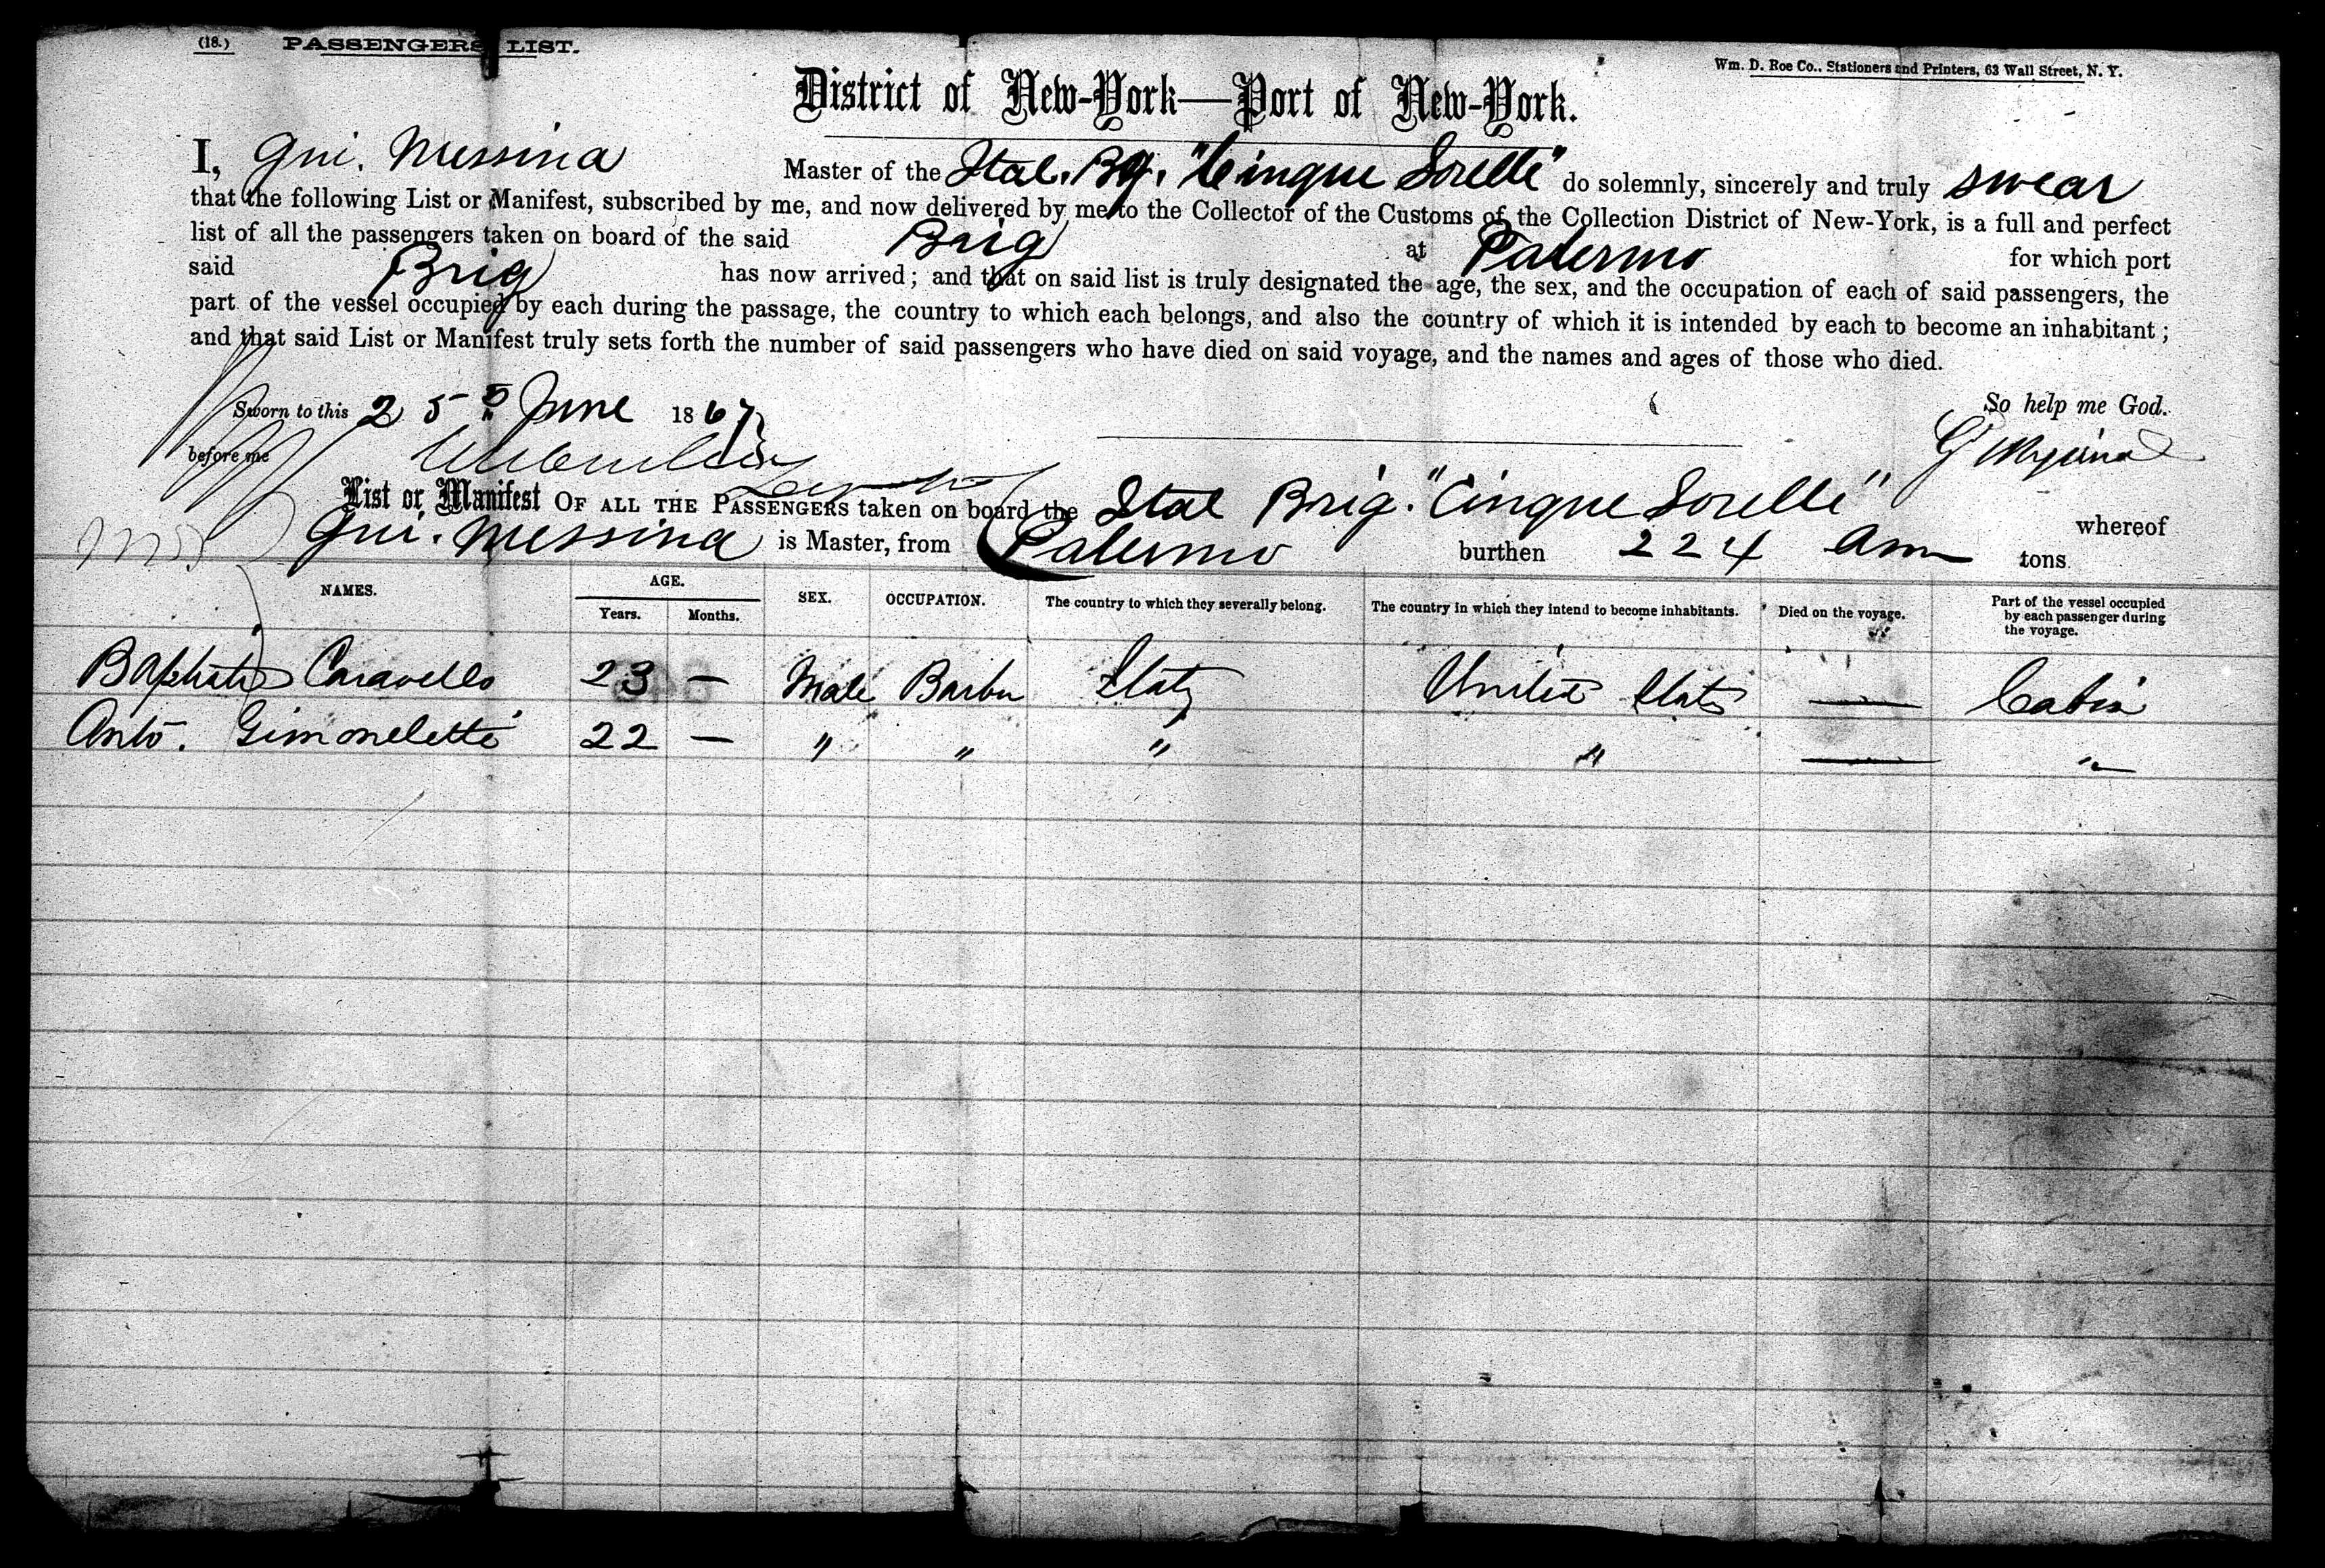 (18.) PASSENGERS LIST.
Wm. D. Roe Co., Stationers and Printers, 63 Wall Street, N. Y.
District of New-York—Port of New-York.
I, Gui. Messina Master of the Ital. Bg. "Cinque Sorelle" do solemnly, sincerely and truly swear
that the following List or Manifest, subscribed by me, and now delivered by me to the Collector of the Customs of the Collection District of New-York, is a full and perfect
list of all the passengers taken on board of the said Brig at Palermo for which port
said Brig has now arrived; and that on said list is truly designated the age, the sex, and the occupation of each of said passengers, the
part of the vessel occupied by each during the passage, the country to which each belongs, and also the country of which it is intended by each to become an inhabitant;
and that said List or Manifest truly sets forth the number of said passengers who have died on said voyage, and the names and ages of those who died.
Sworn to this 25 June 1867 So help me God.
before me
List or Manifest OF ALL THE PASSENGERS taken on board the Ital Brig. "Cinque Sorelle" whereof
Gui. Messina is Master, from Palermo burthen 224 tons.
NAMES. AGE. Years. Months. SEX. OCCUPATION. The country to which they severally belong. The country in which they intend to become inhabitants. Died on the voyage. Part of the vessel occupied by each passenger during the voyage.
Caravello 23 — Male Barber Italy United States — Cabin
Anto. Gimonelette 22 — " " " " — "